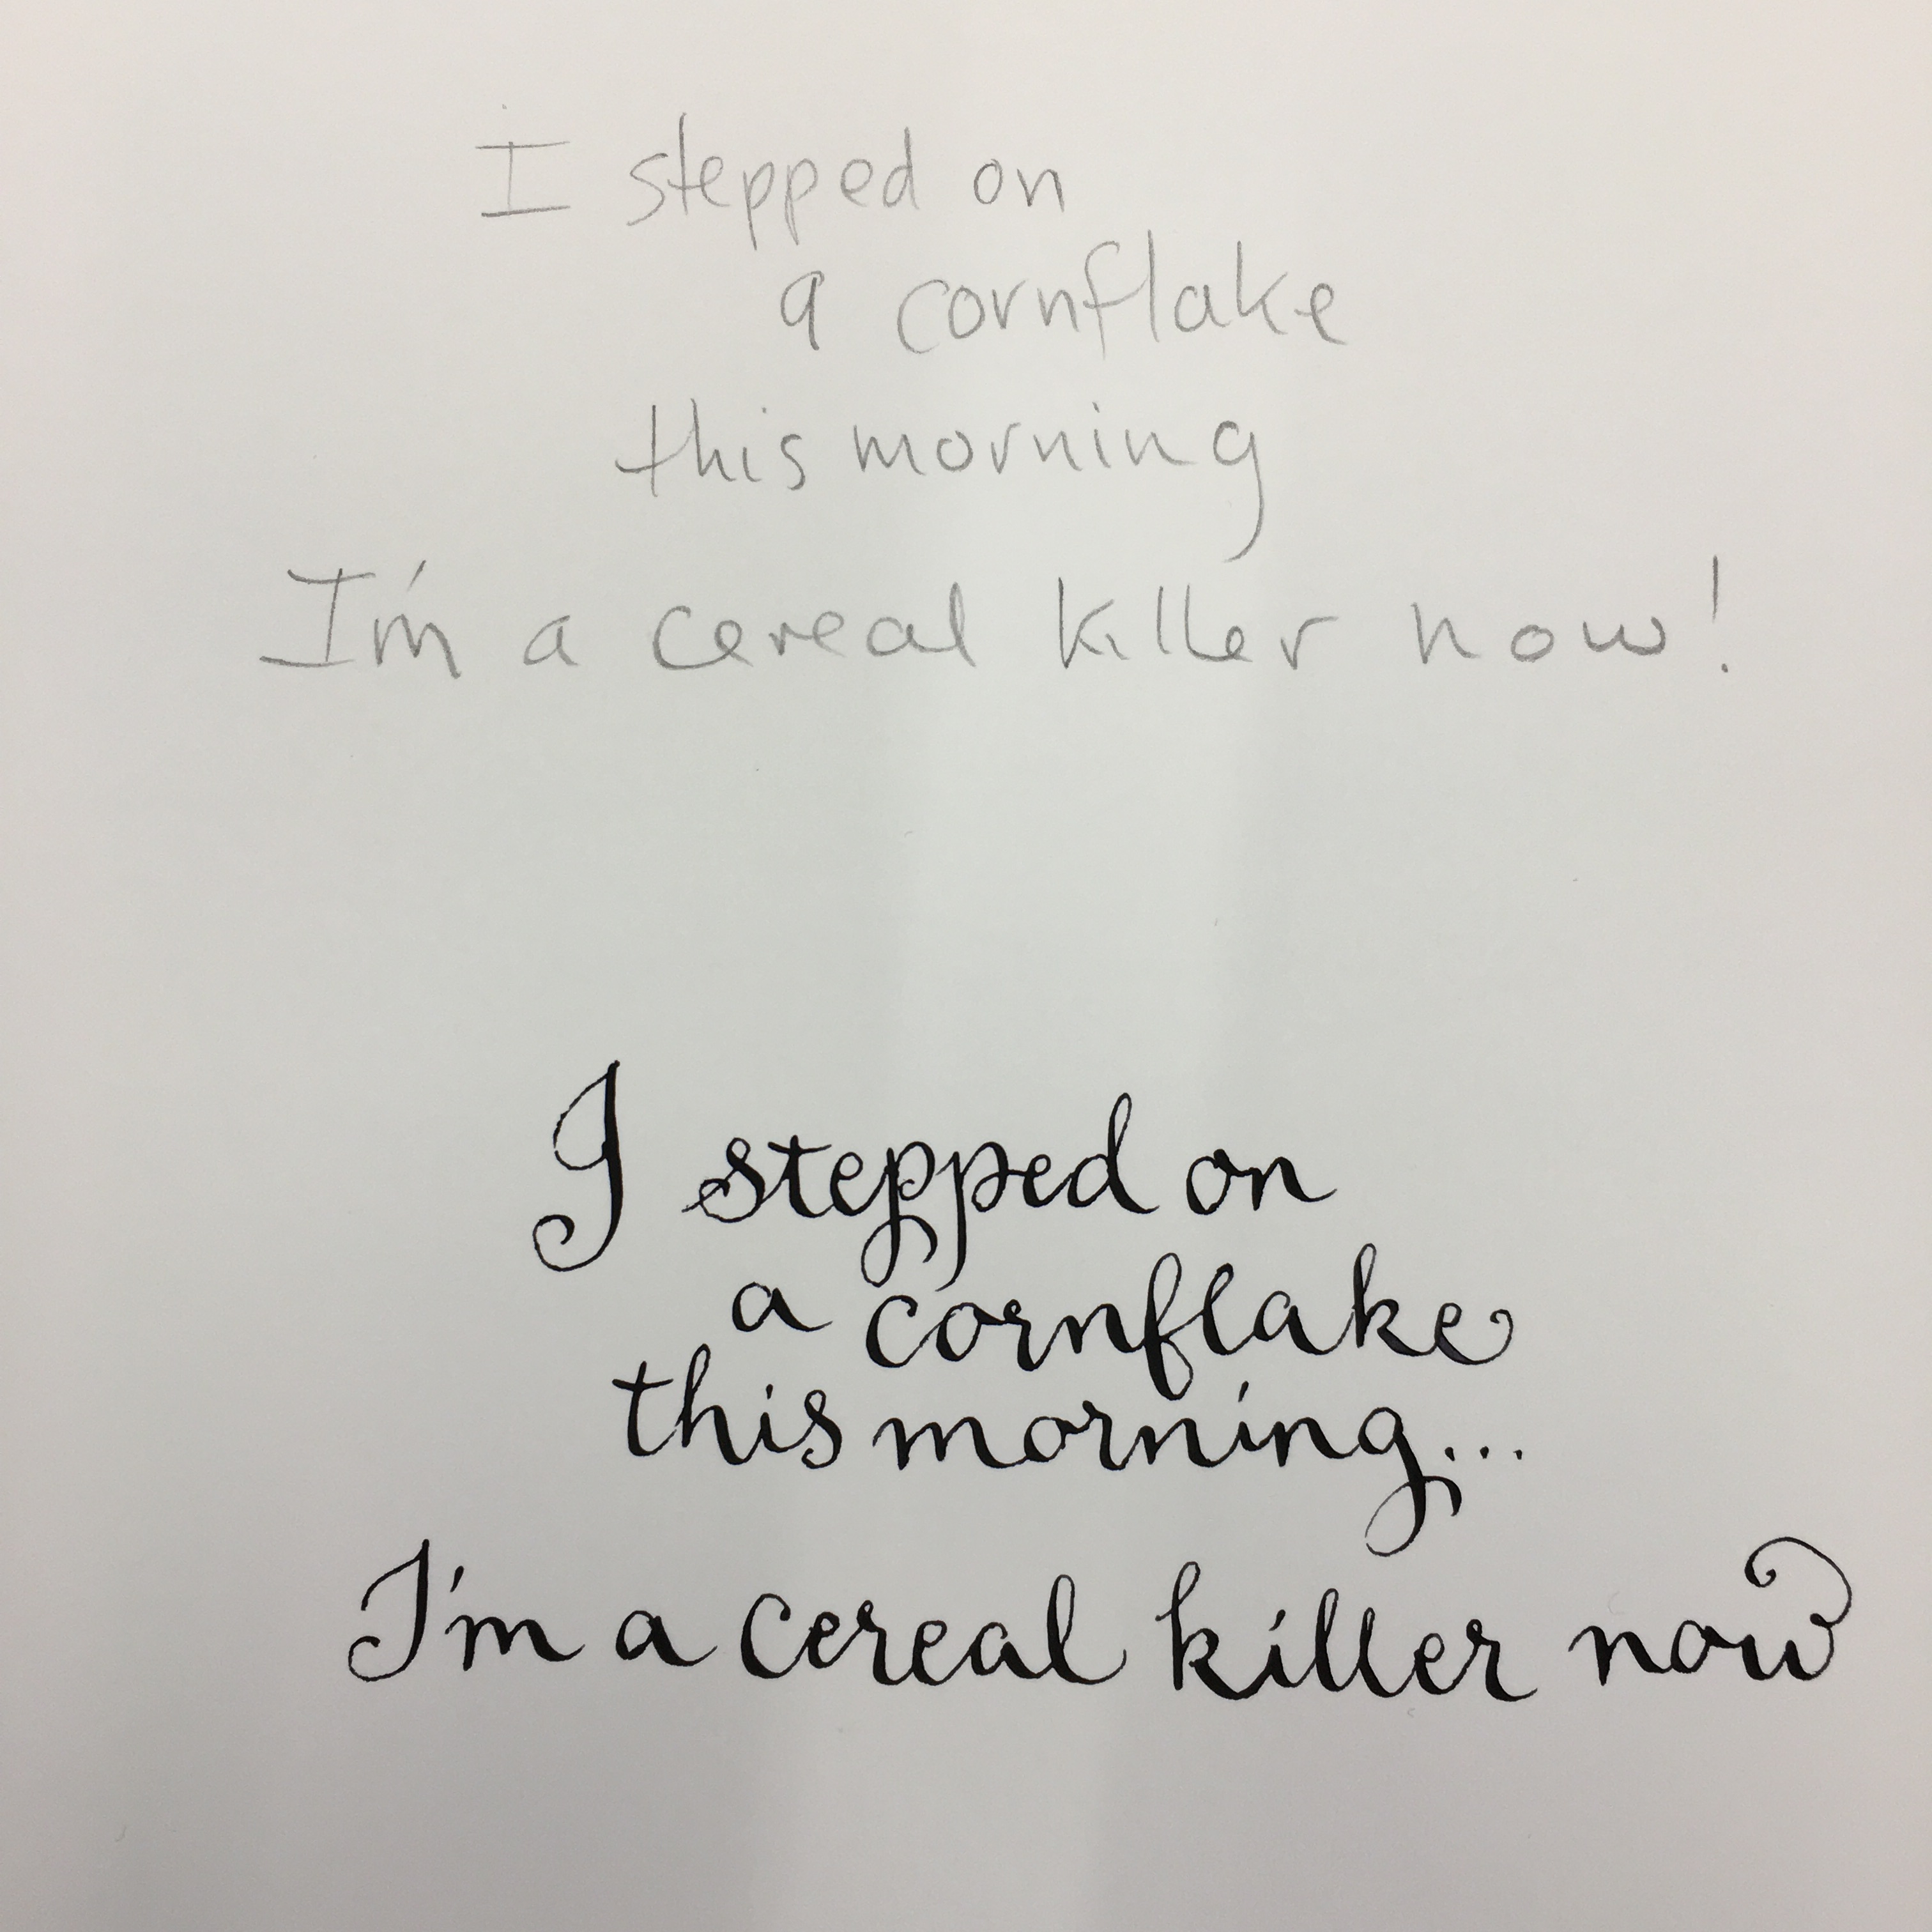 I stepped on
a cornflake
this morning
I'm a cereal killer now!
I stepped on
a cornflake
this morning...
I'm a cereal killer now